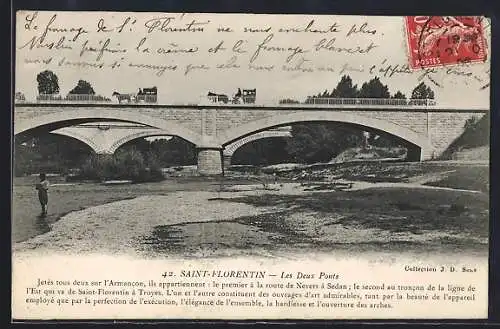 Le fromage de St Florentin ne nous enchante plus.
préfère la crème et le fromage
nous sommes si amusant que cela nous
POSTES
42. SAINT-FLORENTIN — Les Deux Ponts
Collection J. D. Sens
Jetés tous deux sur l'Armançon, ils appartiennent : le premier à la route de Nevers à Sedan; le second au tronçon de la ligne de
l'Est qui va de Saint-Florentin à Troyes. L'un et l'autre constituent des ouvrages d'art admirables, tant par la beauté de l'appareil
employé que par la perfection de l'exécution, l'élégance de l'ensemble, la hardiesse et l'ouverture des arches.